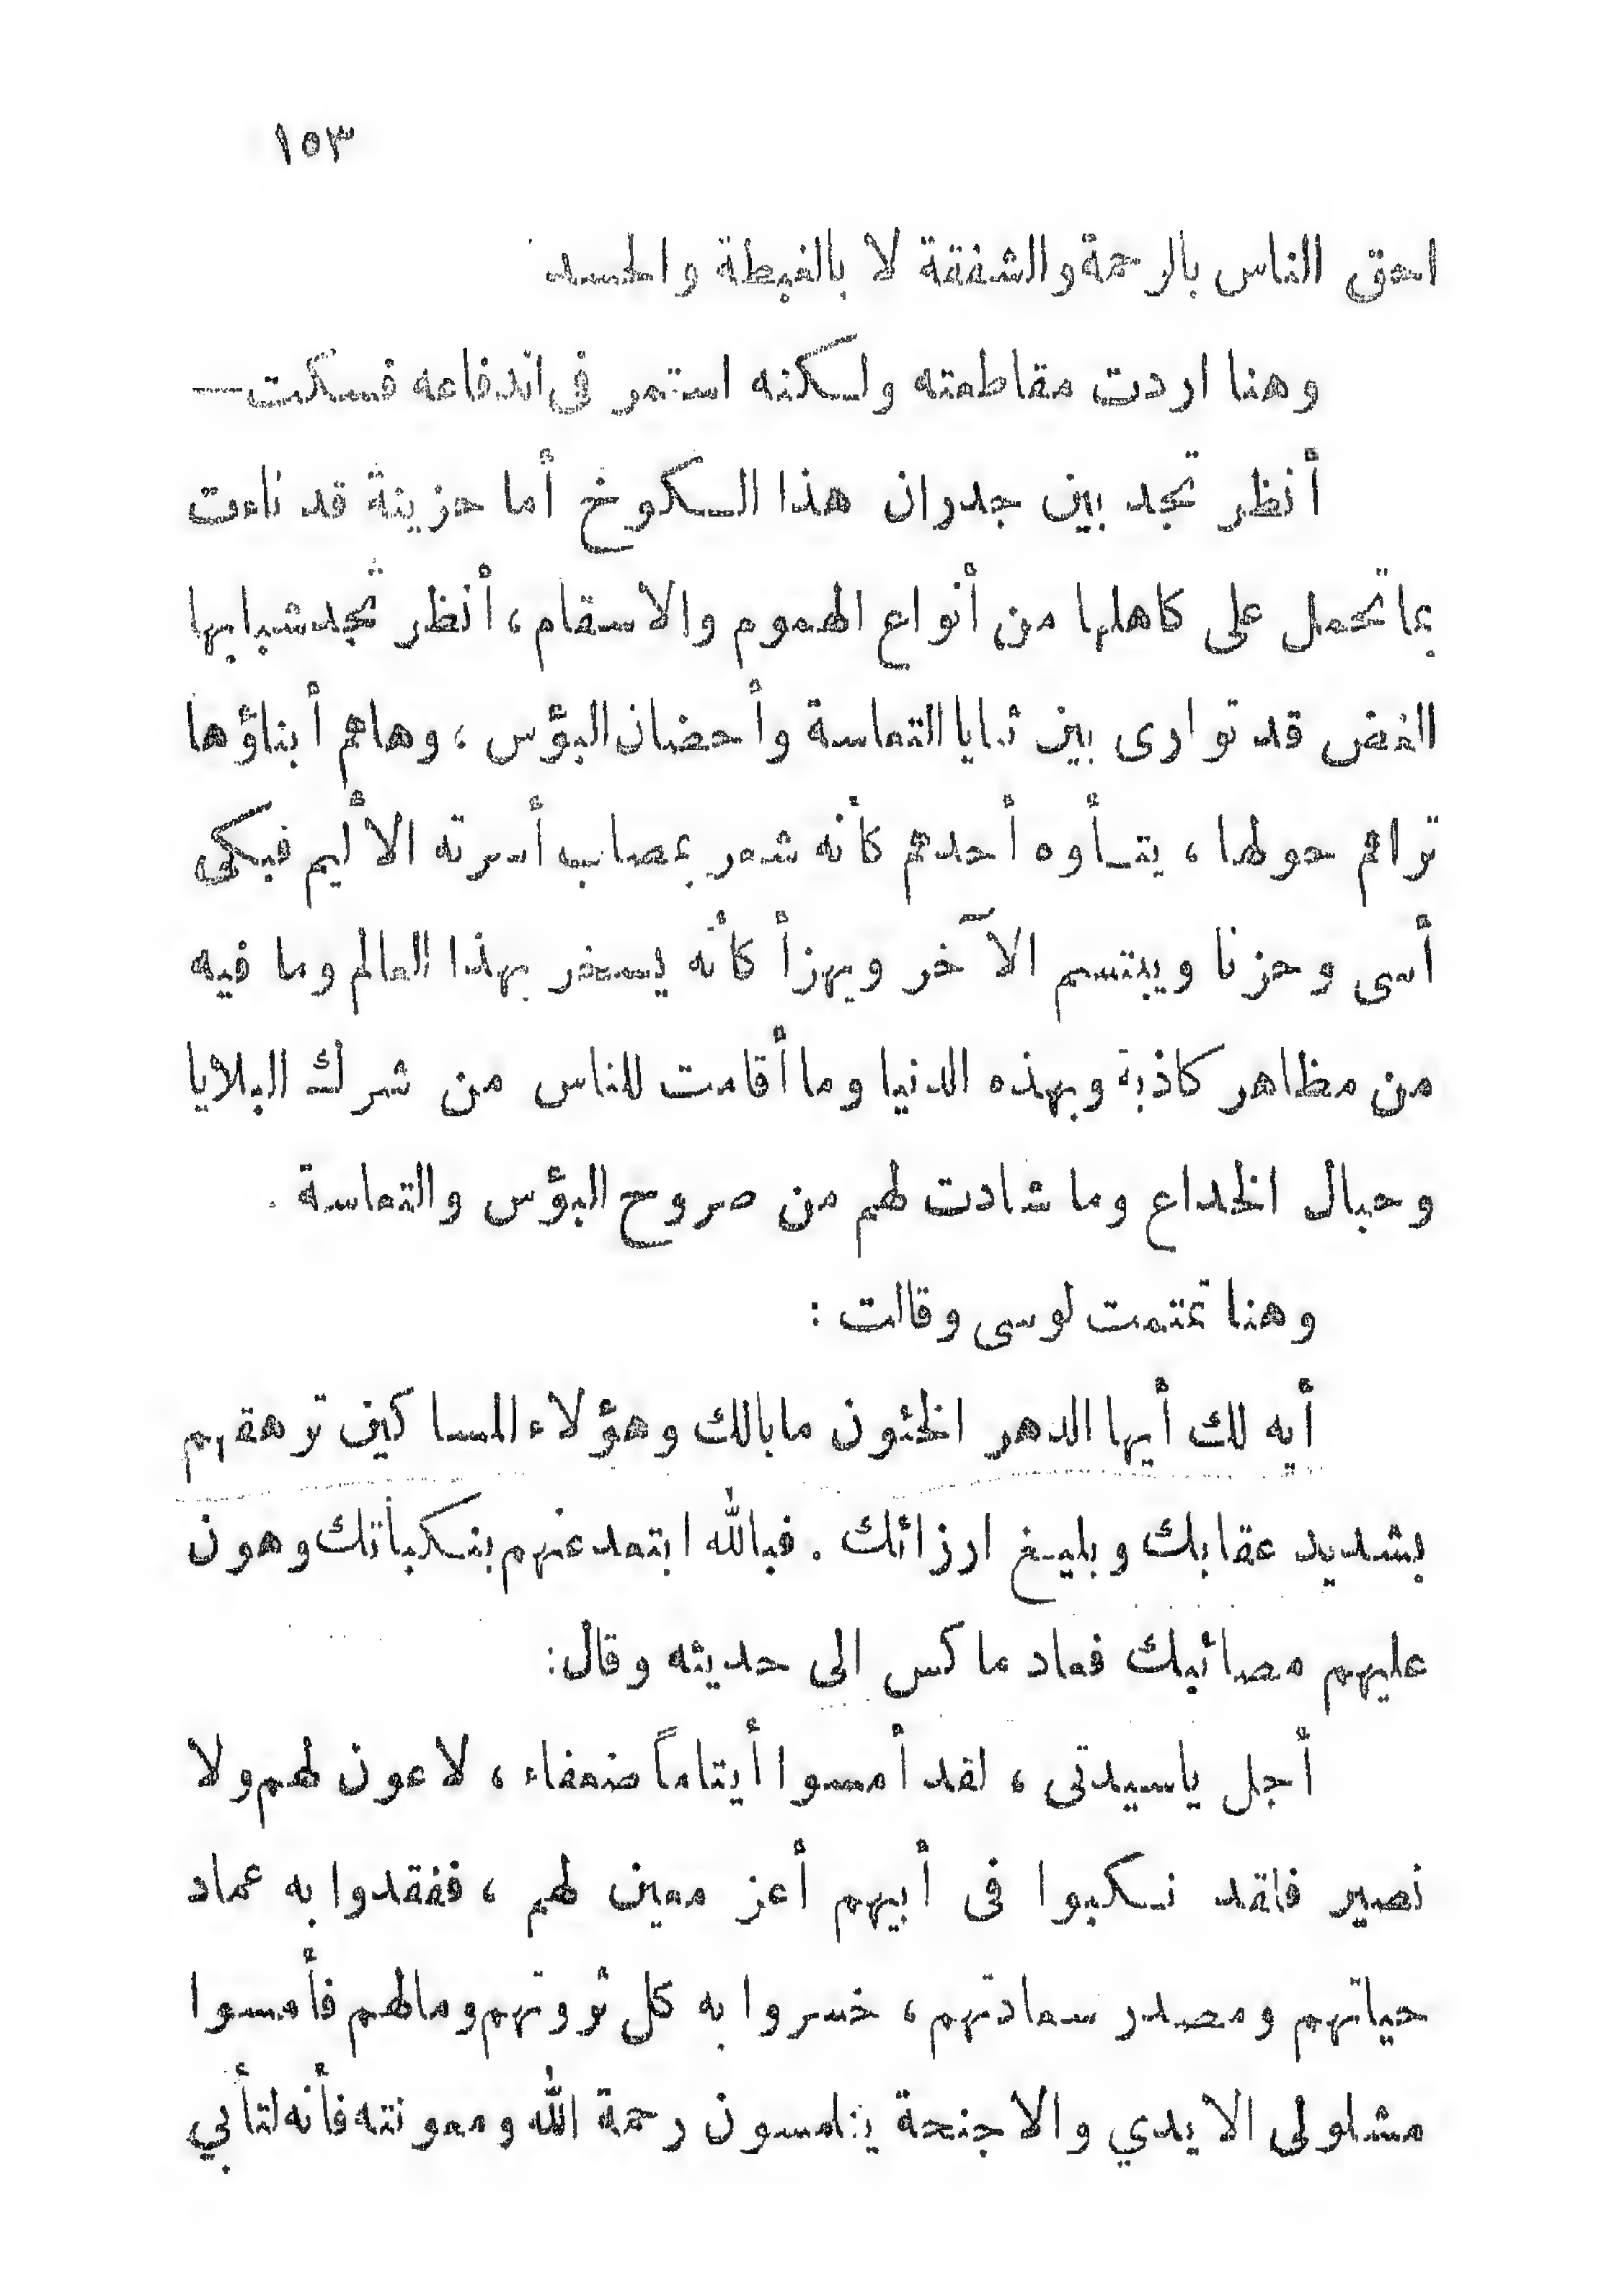 ١٥٣
احق الناس بالرحمة والشفقة لا بالغبطة والحسد
وهنا اردت مقاطعته ولكنه استمر فى اندفاعه فسكت —
أنظر تجد بين جدران هذا الكوخ أما حزينة قد ناءت
بما تحمل على كاهلها من أنواع الهموم والاسقام ، أنظر تجد شبابها
الغض قد توارى بين ثنايا التعاسة وأحضان البؤس ، وهاهم أبناؤها
تراهم حولها ، يتأوه أحدهم كأنه شعر بمصاب أسرته الأليم فيبكى
أسى وحزنا ويبتسم الآخر ويهزأ كأنه يسخر بهذا العالم وما فيه
من مظاهر كاذبة وبهذه الدنيا وما أقامت للناس من شرك البلايا
وحبال الخداع وما شادت لهم من صروح البؤس والتعاسة .
وهنا تمتمت لوسى وقالت :
أيه لك أيها الدهر الخئون مابالك وهؤلاء المساكين ترهقهم
بشديد عقابك وبليغ ارزائك . فبالله ابتعد عنهم بنكباتك وهون
عليهم مصائبك فعاد ماكس الى حديثه وقال :
أجل ياسيدتى ، لقد أمسوا أيتاماً ضعفاء ، لا عون لهم ولا
نصير فلقد نكبوا فى أبيهم أعز معين لهم ، ففقدوا به عماد
حياتهم ومصدر سعادتهم ، خسروا به كل ثروتهم ومالهم فأمسوا
مشلولى الايدي والاجنحة يتلمسون رحمة الله ومعونته فأنه لتأبي